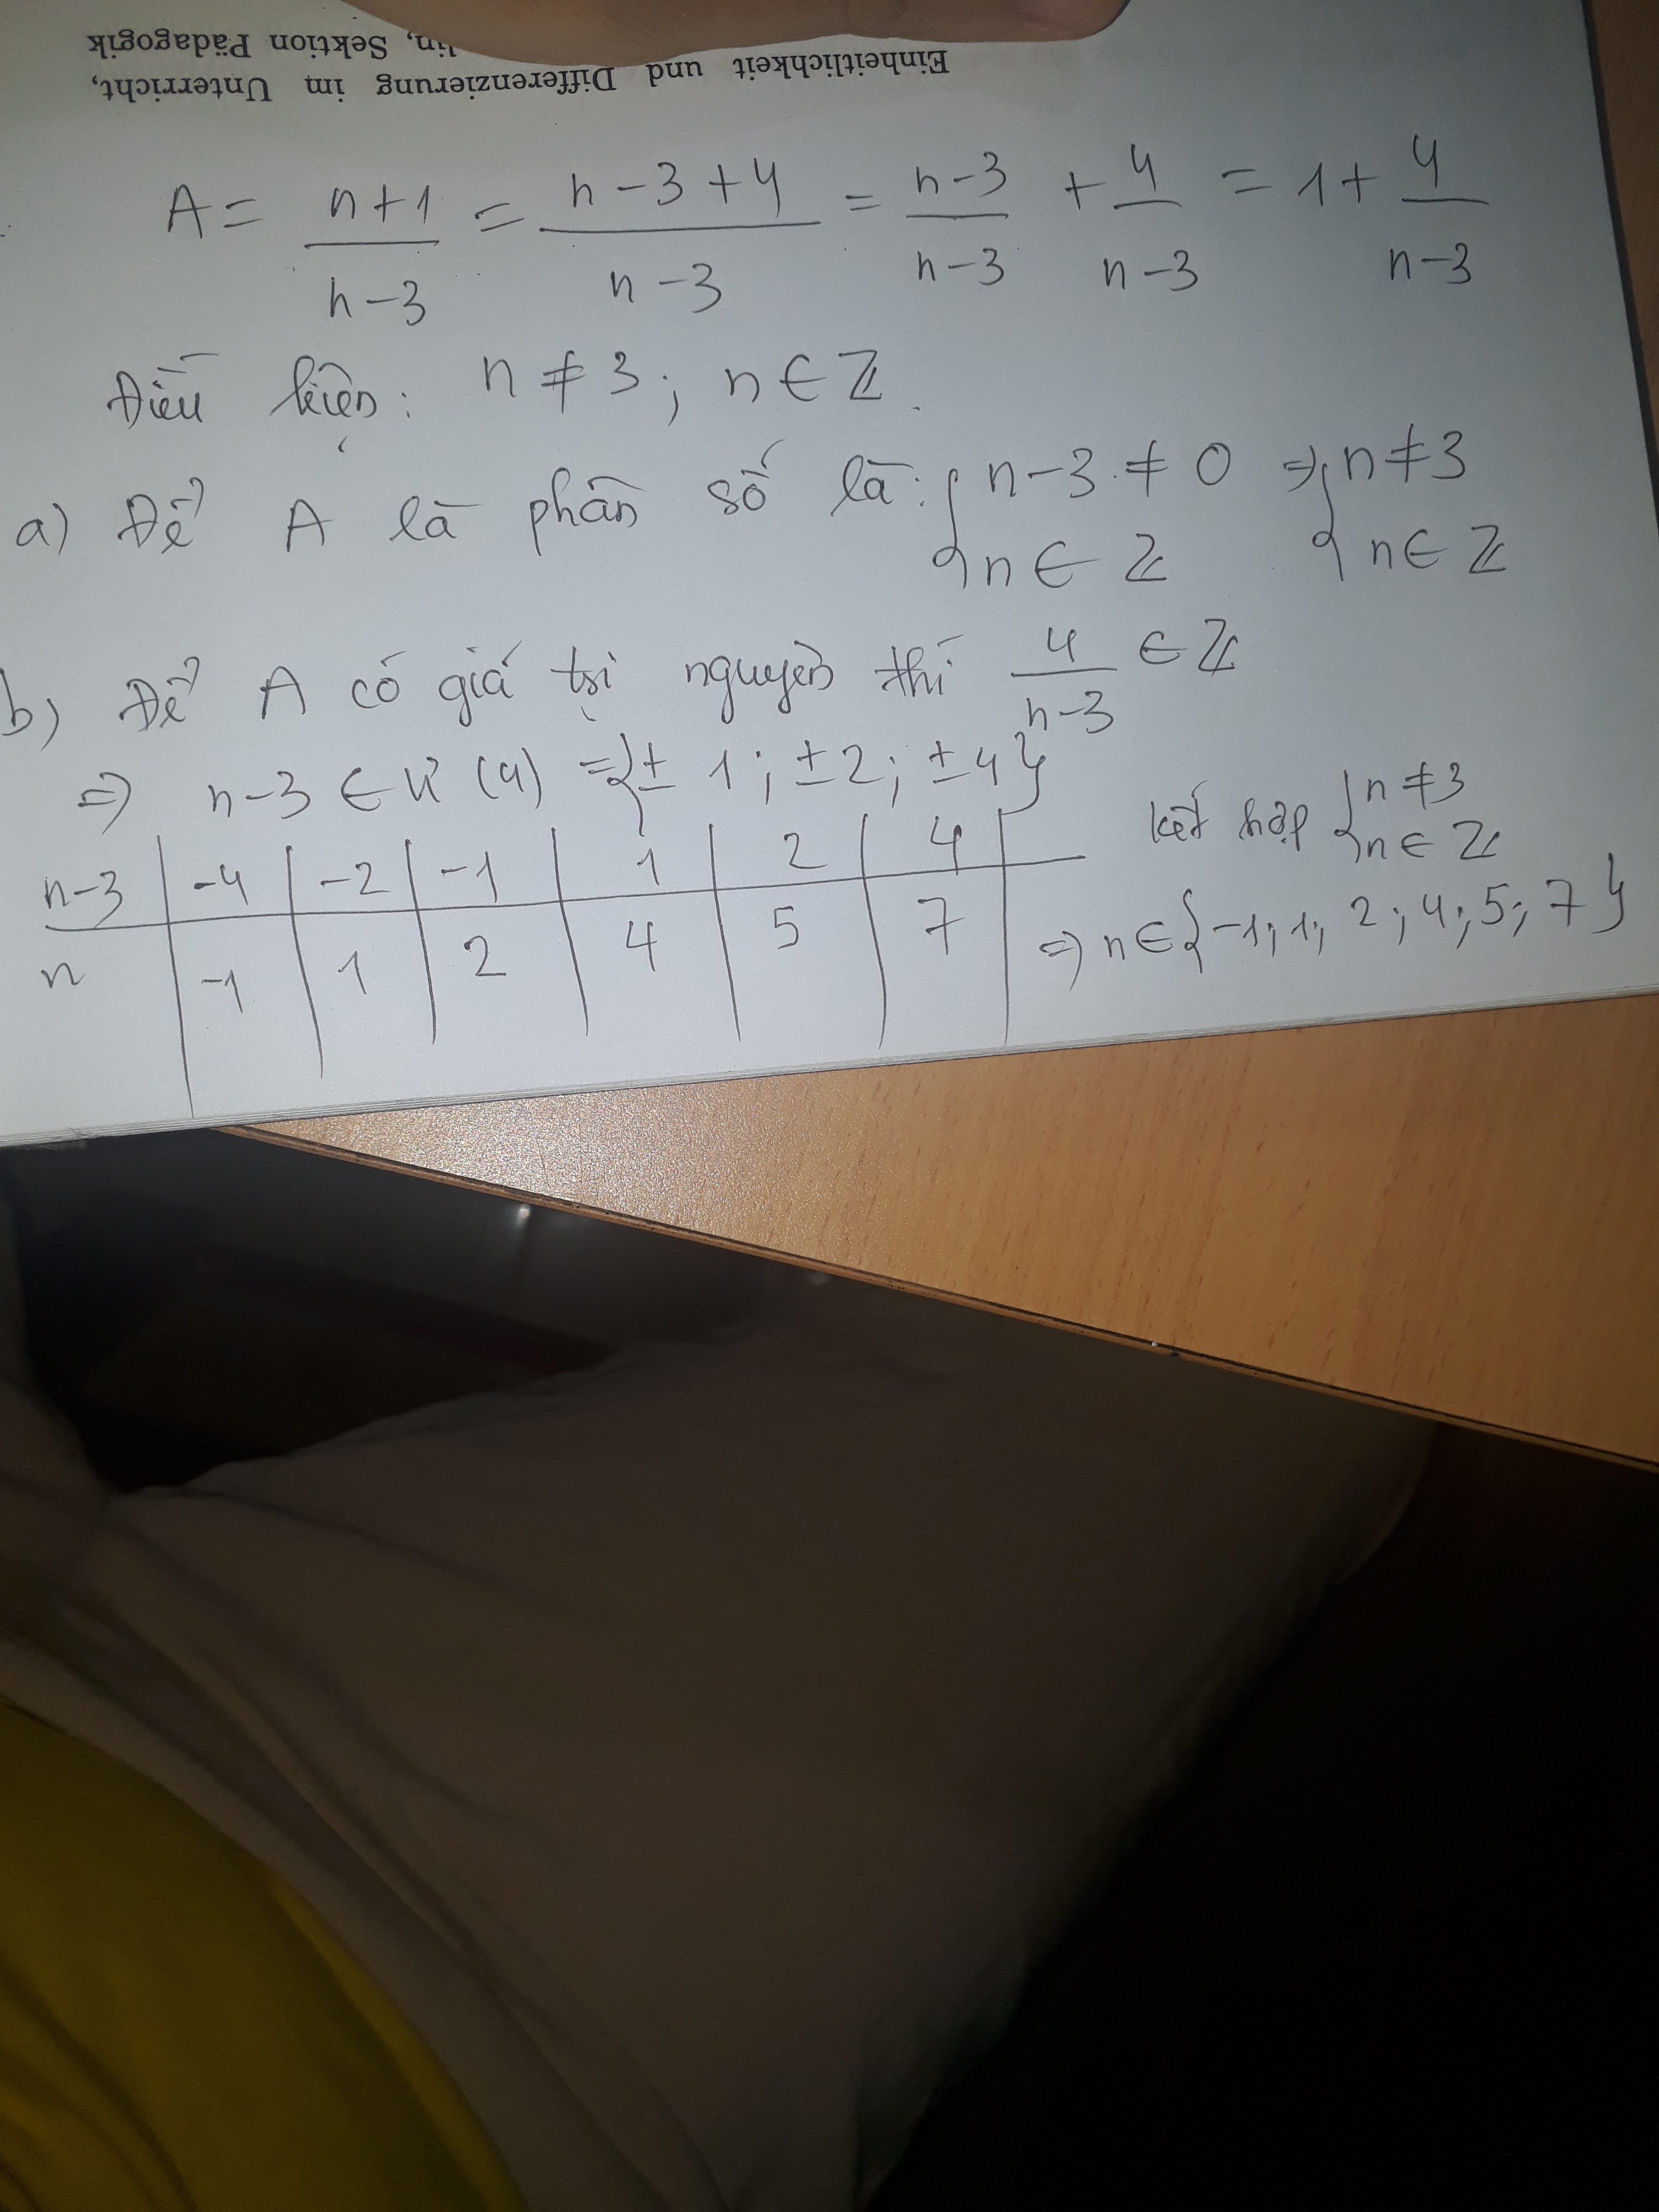 Einheitlichkeit und Differenzierung im Unterricht,
lin, Sektion Pädagogik
A = n+1/n-3 = n-3+4/n-3 = n-3/n-3 + 4/n-3 = 1 + 4/n-3
Điều kiện: n ≠ 3; n ∈ Z.
a) Để A là phân số là: { n-3 ≠ 0 ⇒ { n ≠ 3
n ∈ Z n ∈ Z
b) Để A có giá trị nguyên thì 4/n-3 ∈ Z
⇒ n-3 ∈ Ư (4) = {± 1; ±2; ±4}
kết hợp { n ≠ 3
n ∈ Z
n-3 | -4 | -2 | -1 | 1 | 2 | 4
n | -1 | 1 | 2 | 4 | 5 | 7
⇒ n ∈ {-1; 1; 2; 4; 5; 7}